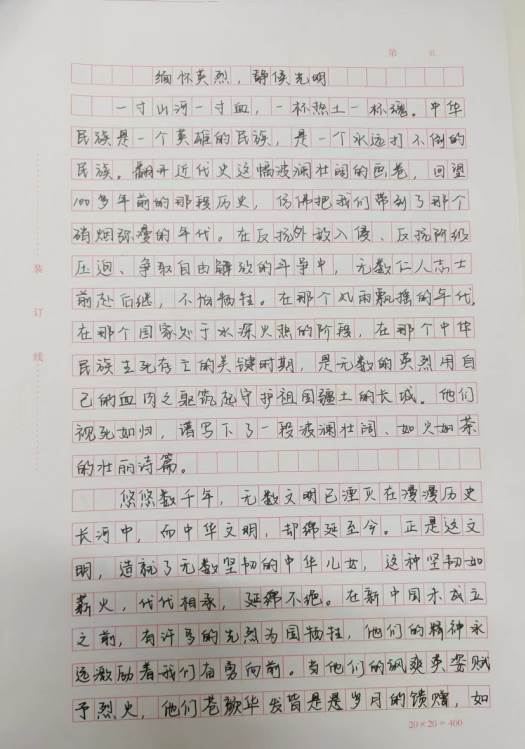 第 页
缅怀英烈，静候光明
一寸山河一寸血，一杯热土一杯魂。中华
民族是一个英雄的民族，是一个永远打不倒的
民族。翻开近代史这幅波澜壮阔的画卷，回望
100多年前的那段历史，仿佛把我们带到了那个
硝烟弥漫的年代。在反抗外敌入侵、反抗阶级
压迫、争取自由解放的斗争中，无数仁人志士
前赴后继，不怕牺牲。在那个风雨飘摇的年代，
在那个国家处于水深火热的阶段，在那个中华
民族生死存亡的关键时期，是无数的英烈用自
己的血肉之躯筑起守护祖国疆土的长城。他们
视死如归，谱写下了一段波澜壮阔、如火如荼
的壮丽诗篇。
悠悠数千年，无数文明已湮灭在漫漫历史
长河中，而中华文明，却绵延至今。正是这文
明，造就了无数坚韧的中华儿女，这种坚韧如
薪火，代代相承，延绵不绝。在新中国未成立
之前，有许多的先烈为国牺牲，他们的精神永
远激励着我们奋勇向前。当他们的飒爽英姿赋
予烈火，他们苍颜华发皆是是岁月的馈赠，如
20×20=400
装
订
线